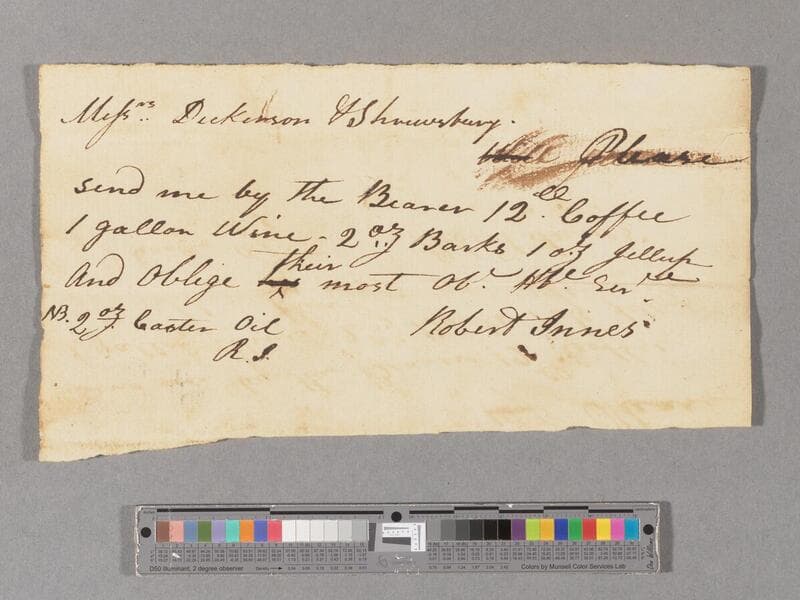 Messrs. Dickinson & Shrewsbury.
Will Please
send me by the Bearer 12 lb. Coffee
1 gallon Wine - 2 oz Barks 1 oz Jellup
And Oblige their most Ob. Hble. Servt
NB. 2 oz Caster Oil
Robert Innes
R. I.
D50 Illuminant, 2 degree observer
Density
Colors by Munsell Color Services Lab